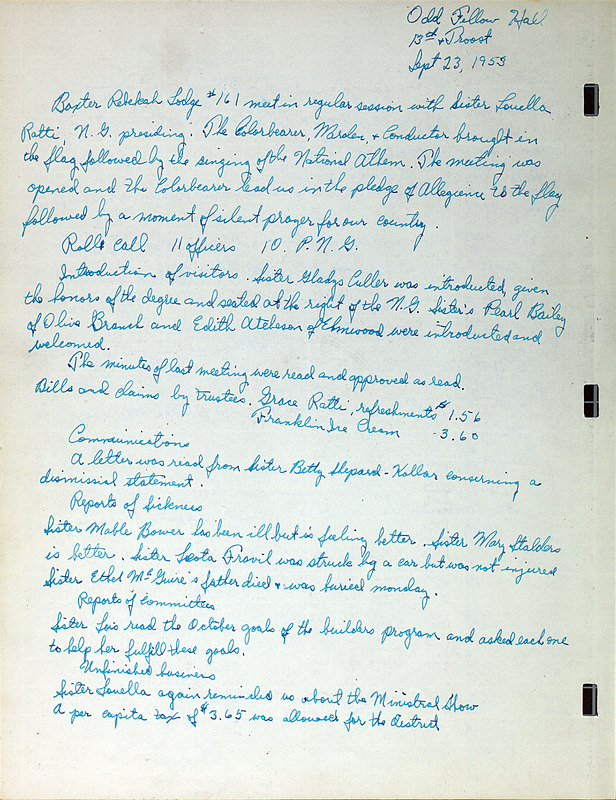 Odd Fellow Hall
13th & Troost
Sept 23, 1953
Baxter Rebekah Lodge #161 meet in regular session with Sister Louella
Ratti, N.G. presiding. The Colorbearer, Warden, & Conductor brought in
the flag followed by the singing of the National Athem. The meeting was
opened and the Colorbearer lead us in the pledge of Allegience to the flag
followed by a moment of silent prayer for our country.
Rolls Call 11 officers 10. P.N.G.
Introduction of visitors. Sister Gladys Culler was introduced, given
the honors of the degree and seated at the right of the N.G. Sister's Pearl Bailey
of Olive Branch and Edith Atcheson of Elmwood were introducted and
welcomed.
The minutes of last meeting were read and approved as read.
Bills and claims by trustees. Grace Ratti, refreshments $1.56
Franklin Ice Cream -3.60
Communications
A letter was read from Sister Betty Shepard-Kollar conserning a
dismissial statement.
Reports of Sickness
Sister Mable Bower has been ill but is feeling better. Sister Mary Stalders
is better. Sister Leota Fravil was struck by a car but was not injured
Sister Ethel McGuire's father died & was buried monday.
Reports of Committees
Sister Lois read the October goals of the builders program and asked each one
to help her fulfill these goals.
Unfinished business
Sister Louella again reminded us about the Ministral Show
A per capita tax of $3.65 was allowed for the District